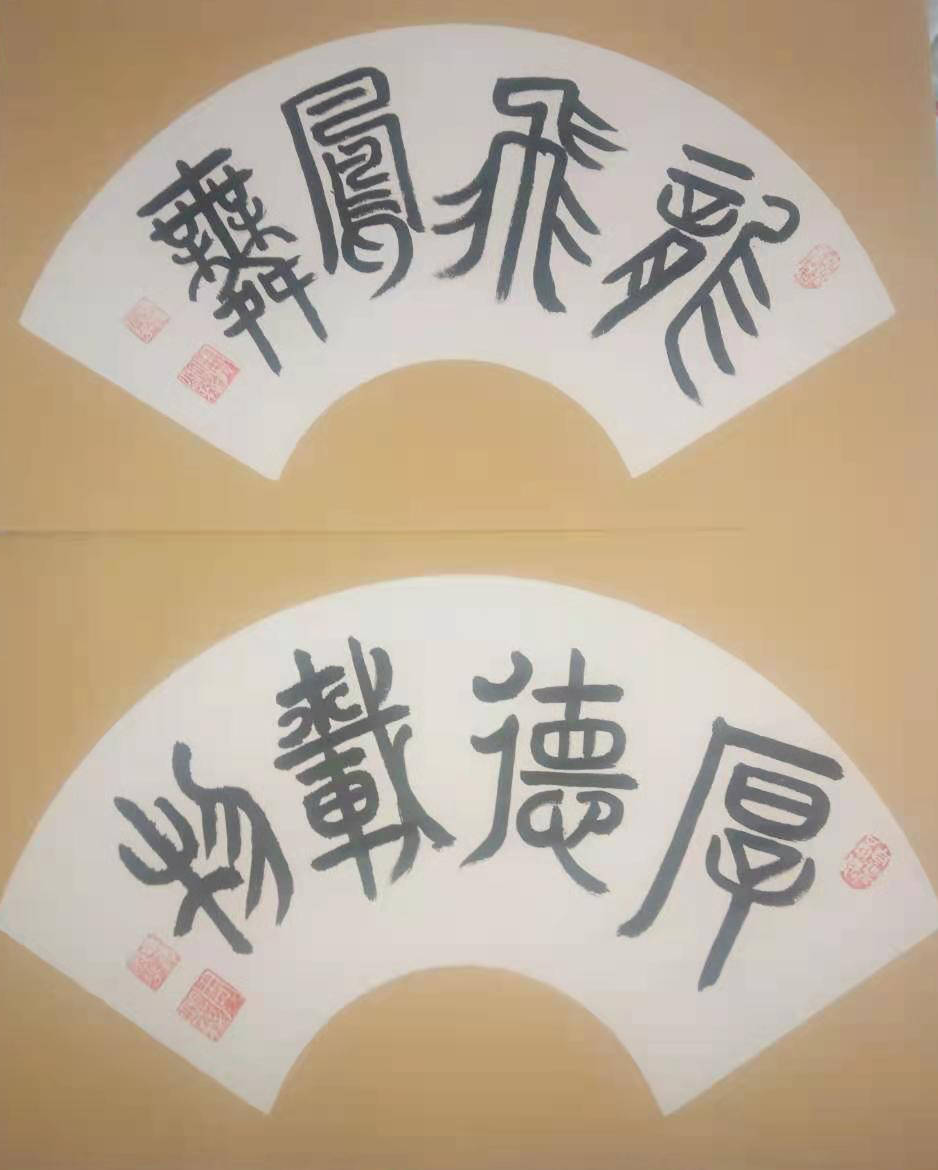 龍飛鳳舞
厚德載物